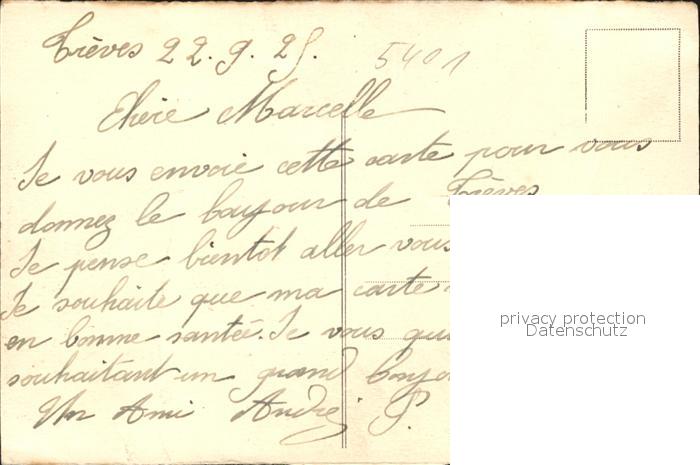 Trèves 22.9.25. 5401
Chère Marcelle
Je vous envoie cette carte pour vous
donnez le boujour de Trèves
Je pense bientot aller vous
Je souhaite que ma carte
en bonne santée. Je vous
souhaitant un grand
Un Ami André P.
privacy protection
Datenschutz